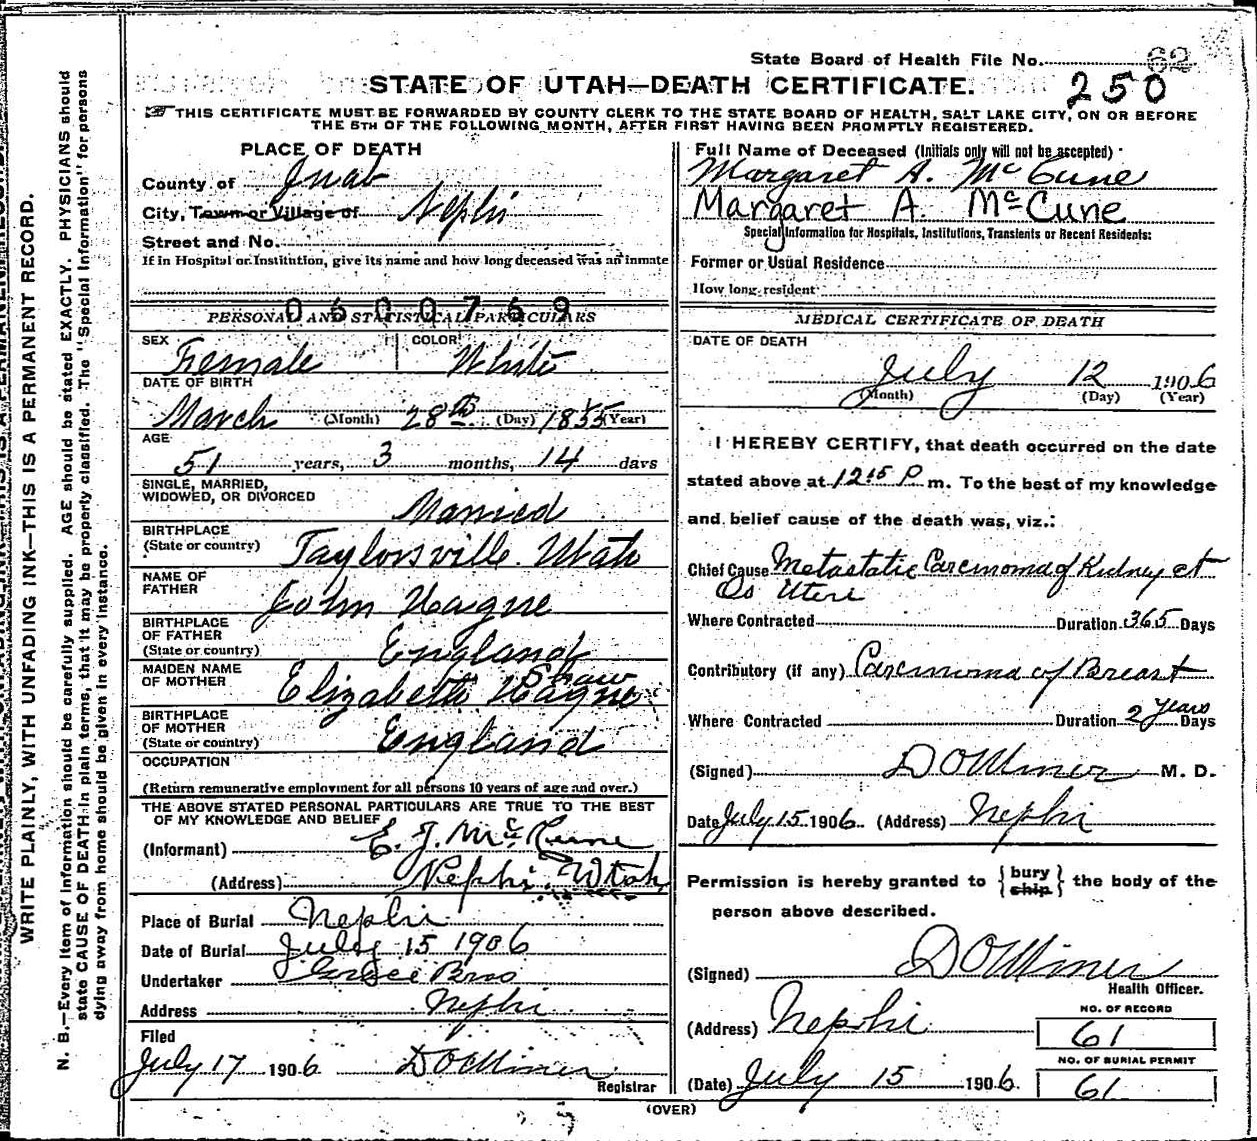 State Board of Health File No. 62
STATE OF UTAH—DEATH CERTIFICATE. 250
THIS CERTIFICATE MUST BE FORWARDED BY COUNTY CLERK TO THE STATE BOARD OF HEALTH, SALT LAKE CITY, ON OR BEFORE
THE 5TH OF THE FOLLOWING MONTH, AFTER FIRST HAVING BEEN PROMPTLY REGISTERED.
PLACE OF DEATH
County of Juab
City, Town or Village of Nephi
Street and No.
If in Hospital or Institution, give its name and how long deceased was an inmate
0600769
PERSONAL AND STATISTICAL PARTICULARS
SEX Female COLOR White
DATE OF BIRTH
March (Month) 28th (Day) 1855 (Year)
AGE
51 years, 3 months, 14 days
SINGLE, MARRIED,
WIDOWED, OR DIVORCED Married
BIRTHPLACE
(State or country) Taylorsville Utah
NAME OF
FATHER John Hague
BIRTHPLACE
OF FATHER
(State or country) England
MAIDEN NAME
OF MOTHER Elizabeth Hague Shaw
BIRTHPLACE
OF MOTHER
(State or country) England
OCCUPATION
(Return remunerative employment for all persons 10 years of age and over.)
THE ABOVE STATED PERSONAL PARTICULARS ARE TRUE TO THE BEST
OF MY KNOWLEDGE AND BELIEF
(Informant) E. J. McCune
(Address) Nephi, Utah
Place of Burial Nephi
Date of Burial July 15 1906
Undertaker Bros
Address Nephi
Filed
July 17 1906 D O Miner
Registrar
Full Name of Deceased (Initials only will not be accepted)
Margaret A. McCune
Margaret A. McCune
Special Information for Hospitals, Institutions, Transients or Recent Residents:
Former or Usual Residence
How long resident
MEDICAL CERTIFICATE OF DEATH
DATE OF DEATH
July 12 1906
(Month) (Day) (Year)
I HEREBY CERTIFY, that death occurred on the date
stated above at 12 15 P m. To the best of my knowledge
and belief cause of the death was, viz.:
Chief Cause Metastatic Carcinoma of Kidney et
Os Uteri
Where Contracted Duration 365 Days
Contributory (if any) Carcinoma of Breast
Where Contracted Duration 2 years Days
(Signed) D O Miner M. D.
Date July 15 1906. (Address) Nephi
Permission is hereby granted to {bury ship} the body of the
person above described.
(Signed) D O Miner
Health Officer.
(Address) Nephi
NO. OF RECORD
61
(Date) July 15 1906.
NO. OF BURIAL PERMIT
61
(OVER)
WRITE PLAINLY, WITH UNFADING INK—THIS IS A PERMANENT RECORD.
N. B.—Every item of information should be carefully supplied. AGE should be stated EXACTLY. PHYSICIANS should
state CAUSE OF DEATH in plain terms, that it may be properly classified. The "Special Information" for persons
dying away from home should be given in every instance.